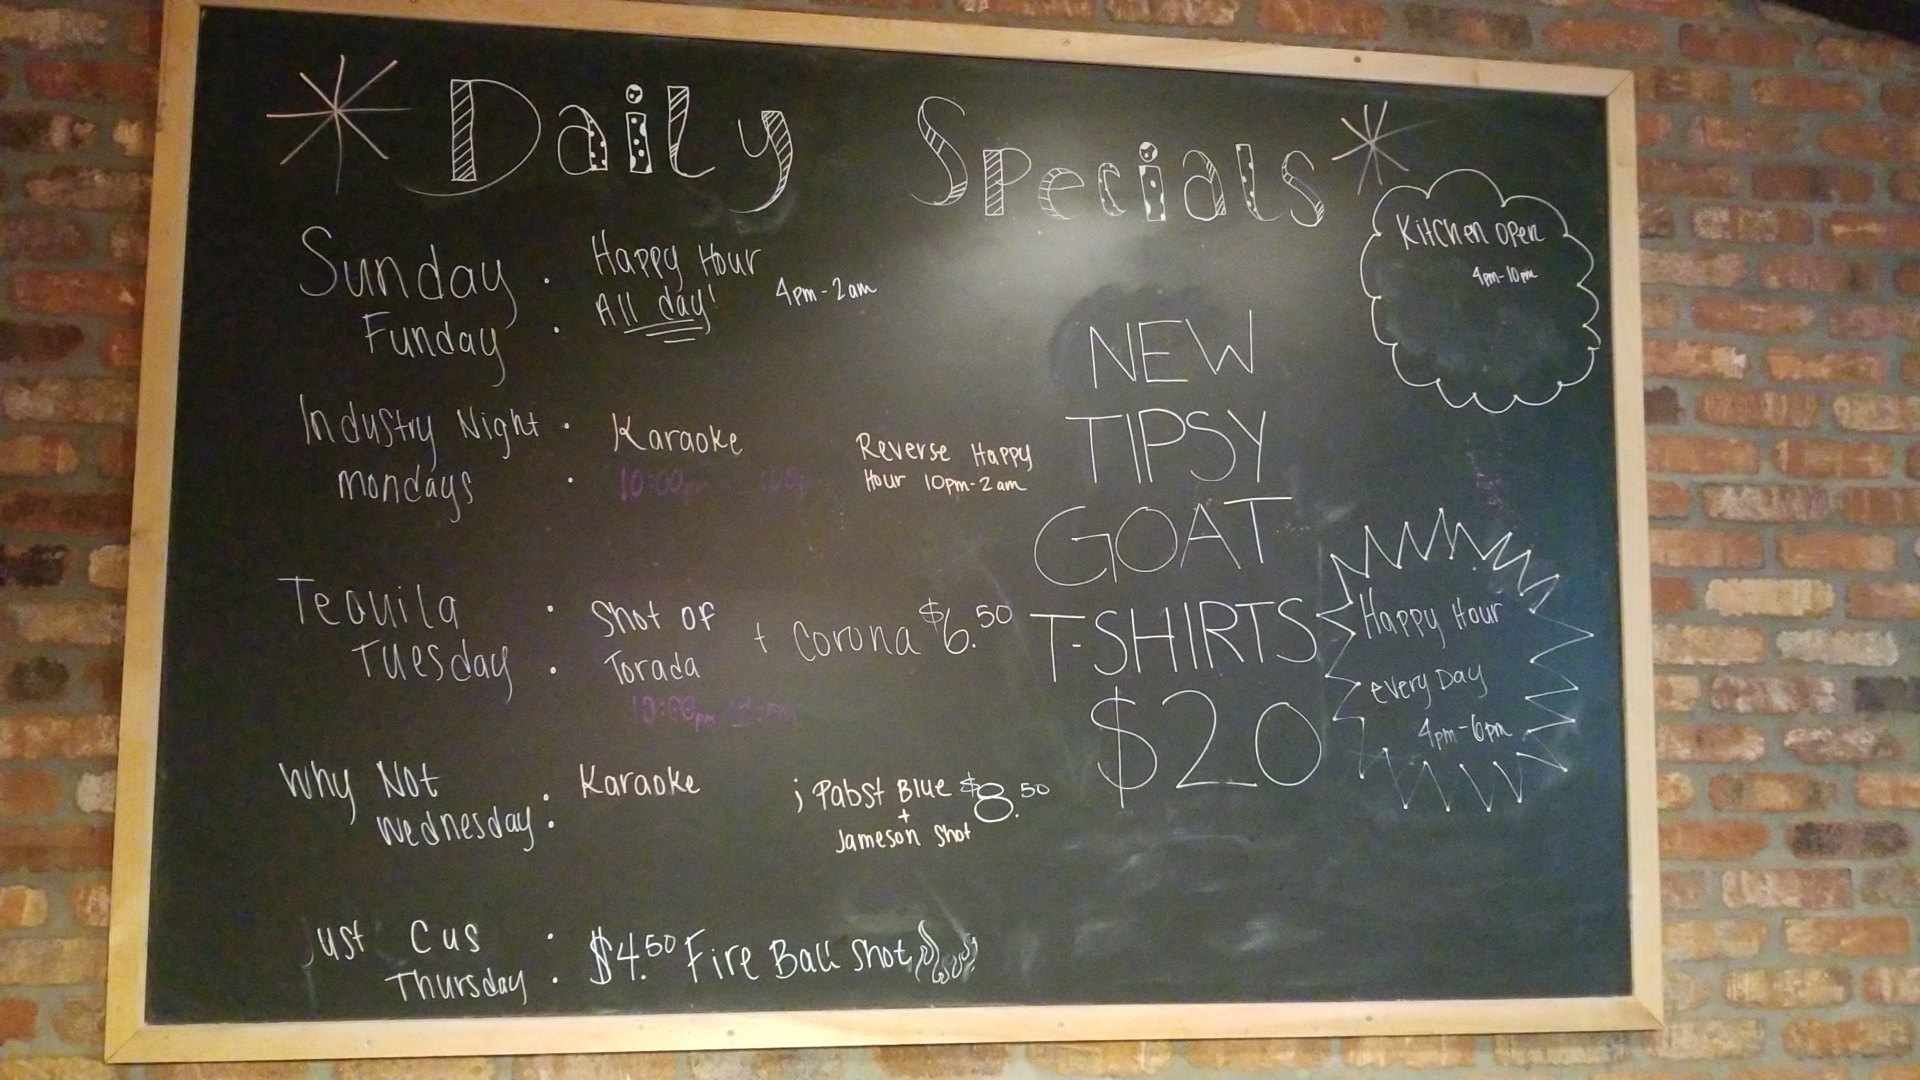 Daily Specials
Sunday Funday : Happy Hour All day! 4pm-2am
Industry Night Mondays : Karaoke Reverse Happy Hour 10pm-2am
10:00pm
Tequila Tuesday : Shot of Torada + Corona $6.50
10:00pm
Why Not Wednesday : Karaoke ; Pabst Blue + Jameson Shot $8.50
Just Cus Thursday : $4.50 Fire Ball Shot
NEW
TIPSY
GOAT
T-SHIRTS
$20
Kitchen open
4pm-10pm
Happy Hour
every Day
4pm-6pm